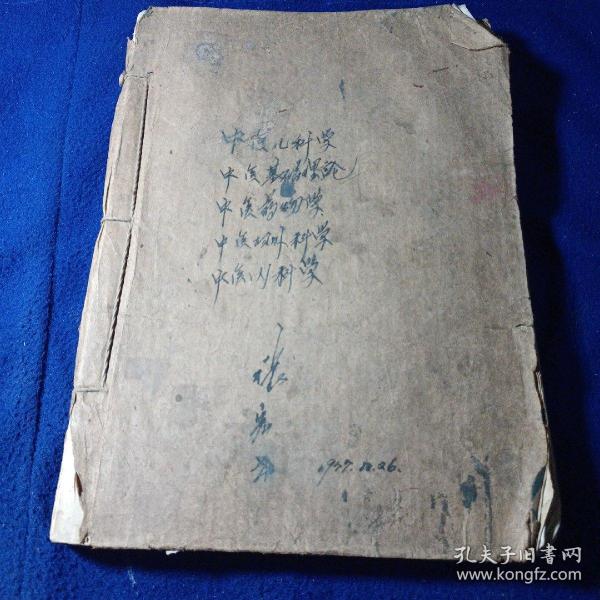 中医儿科学
中医基础理论
中医药物学
中医妇外科学
中医内科学
张
宏
1977.
26.
孔夫子旧書网
www.kongfz.com